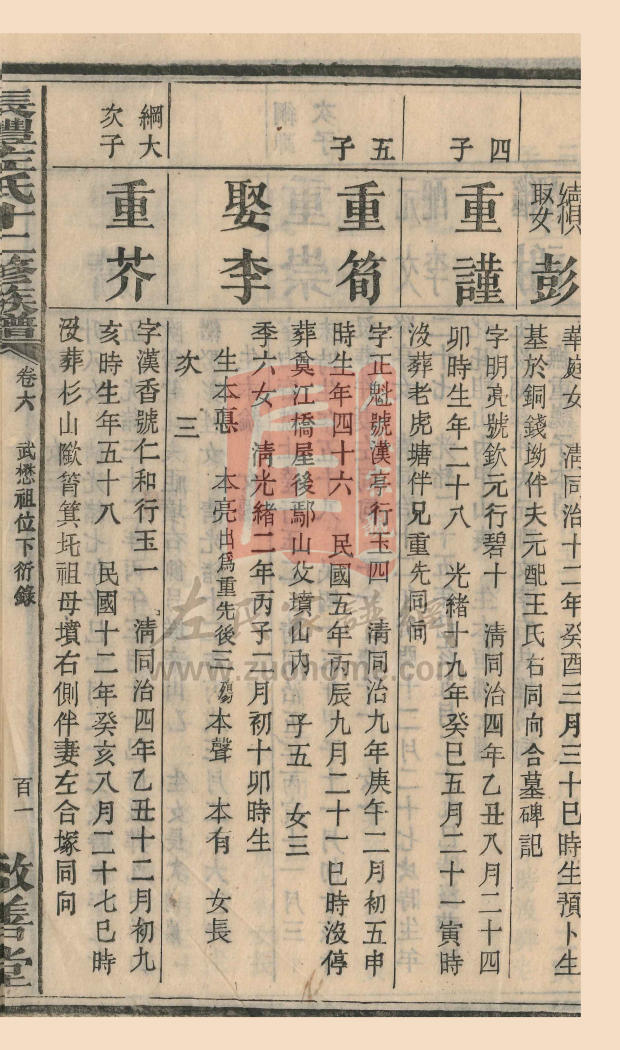 續慎取女
彭
華庭女 清同治十二年癸酉三月三十巳時生預卜生
基於銅錢坳伴夫元配王氏右同向合墓碑記
四子
重謹
字明亮號欽元行碧十 清同治四年乙丑八月二十四
卯時生年二十八 光緒十九年癸巳五月二十一寅時
沒葬老虎塘伴兄重先同向
五子
重筍
字正魁號漢亭行玉四 清同治九年庚午二月初五申
時生年四十六 民國五年丙辰九月二十一巳時沒停
葬奠江橋屋後鄢山父墳山內 子五 女三
娶李
季六女 清光緒二年丙子二月初十卯時生
生本惪 本亮出為重先後三殤本聲 本有 女長
次 三
綱大次子
重芥
字漢香號仁和行玉一 清同治四年乙丑十二月初九
亥時生年五十八 民國十二年癸亥八月二十七巳時
沒葬杉山歐筲箕坵祖母墳右側伴妻左合塚同向
長澧左氏十二修族譜
卷六 武懋祖位下衍錄
百一
敦善堂
左氏家譜網
www.zuohome.com